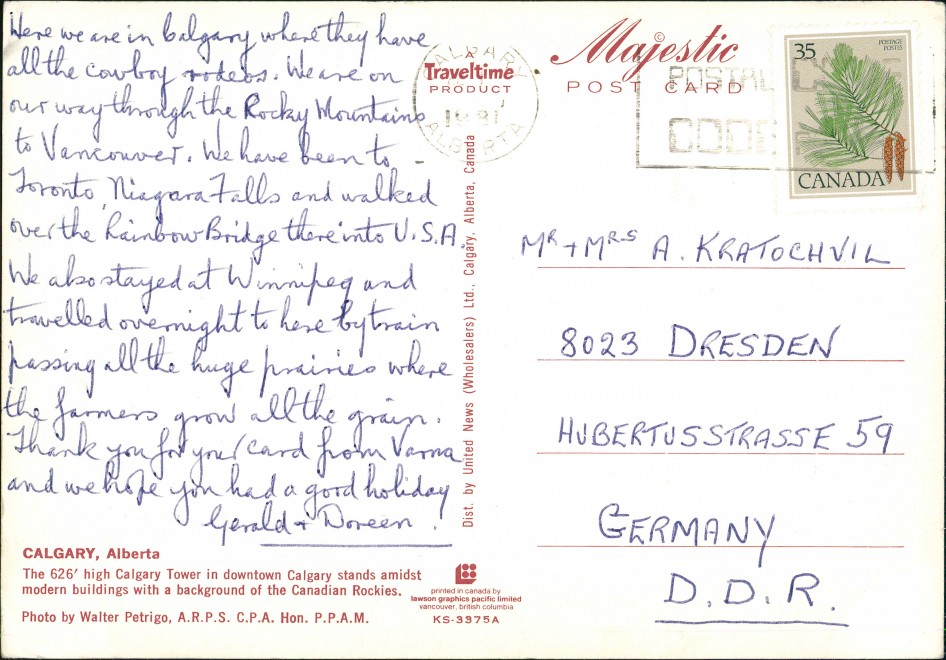 Here we are in Calgary where they have
all the cowboy rodeos. We are on
our way through the Rocky Mountains
to Vancouver. We have been to
Toronto, Niagara Falls and walked
over the Rainbow Bridge there into U.S.A.
We also stayed at Winnipeg and
travelled overnight to here by train
passing all the huge prairies where
the farmers grow all the grain.
Thank you for your card from Varna
and we hope you had a good holiday
Gerald + Doreen.
CALGARY, Alberta
The 626' high Calgary Tower in downtown Calgary stands amidst
modern buildings with a background of the Canadian Rockies.
Photo by Walter Petrigo, A.R.P.S. C.P.A. Hon. P.P.A.M.
A
Traveltime
PRODUCT
CALGARY
1981
ALBERTA
Dist. by United News (Wholesalers) Ltd., Calgary, Alberta, Canada
printed in canada by
lawson graphics pacific limited
vancouver, british columbia
KS-3375A
©
Majestic
POST CARD
POSTAL
CODE
35
POSTAGE
POSTES
CANADA
Mr + Mrs A. KRATOCHVIL
8023 DRESDEN
HUBERTUSSTRASSE 59
GERMANY
D.D.R.